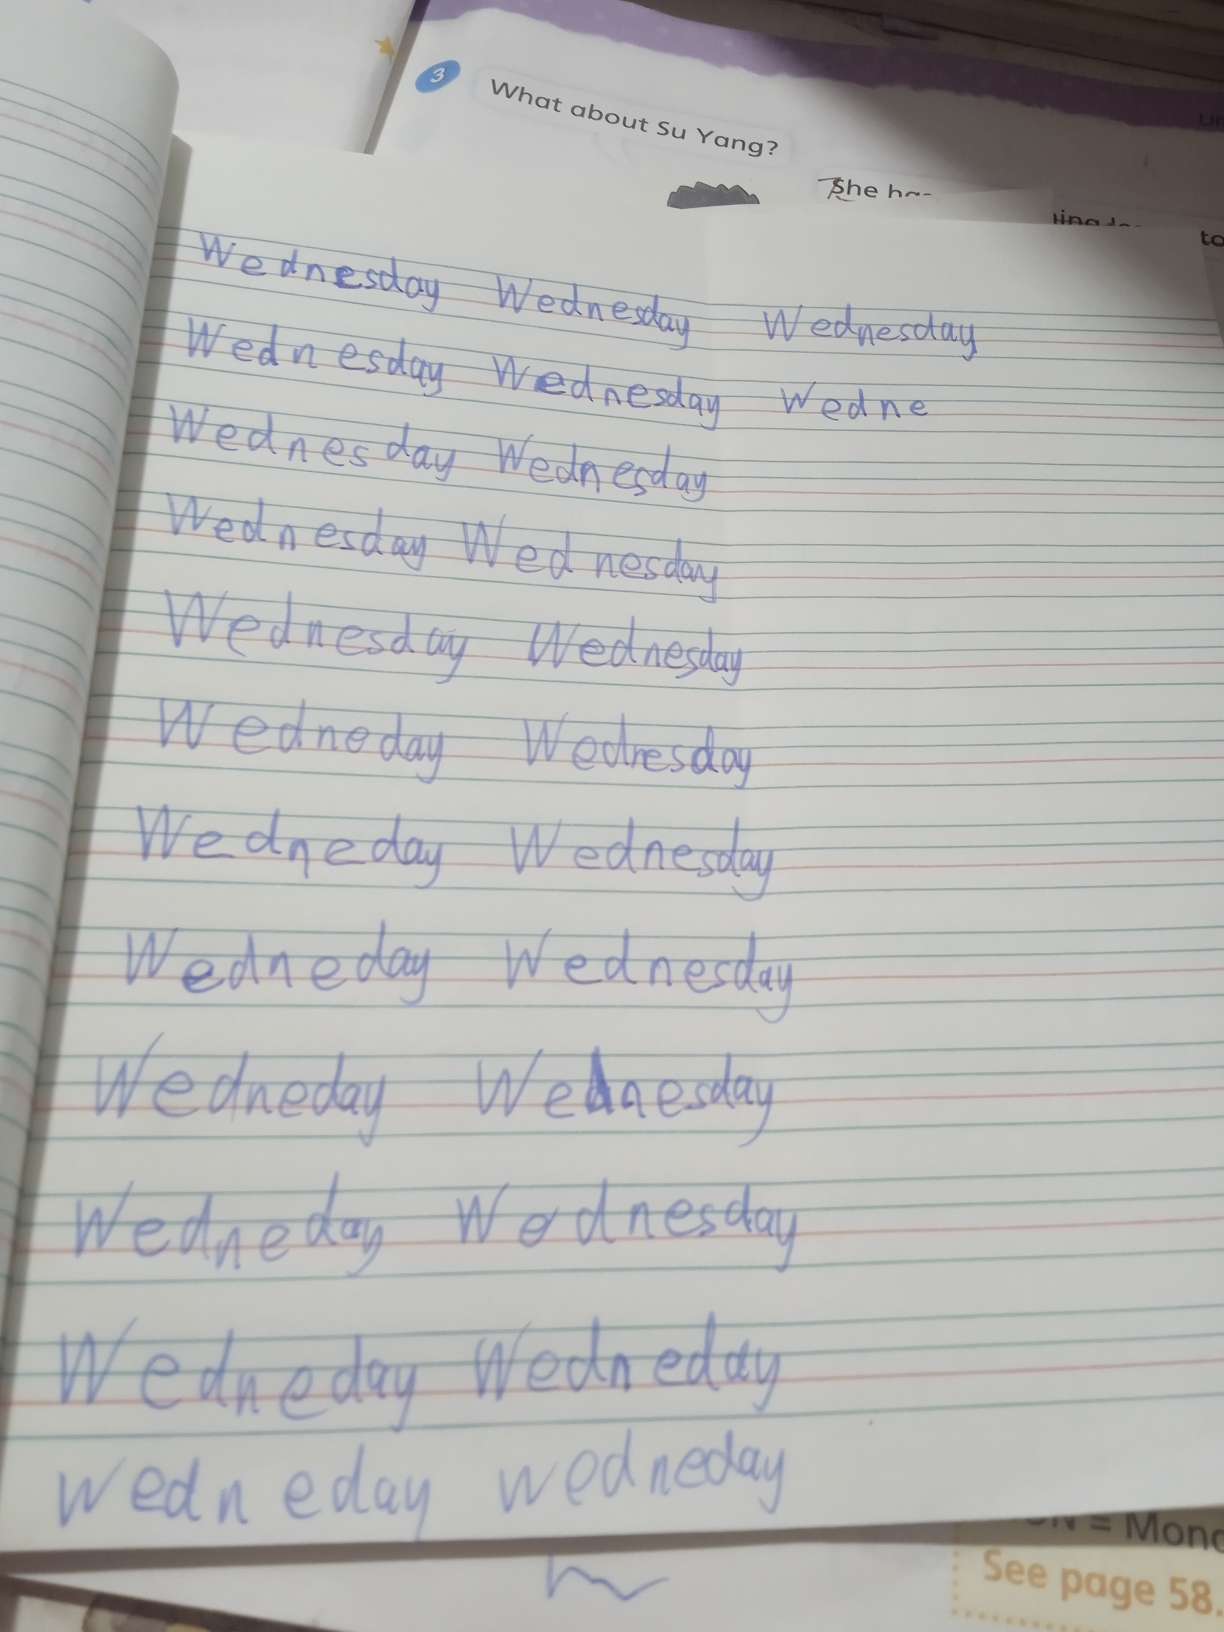 3 What about Su Yang?
She
to
Wednesday Wednesday Wednesday
Wednesday Wednesday Wedne
Wednesday Wednesday
Wednesday Wednesday
Wednesday Wednesday
Wedneday Wednesday
Wedneday Wednesday
Wedneday Wednesday
Wedneday Wednesday
Wedneday Wednesday
Wedneday Wedneday
wedneday wedneday
= Mon
See page 58.